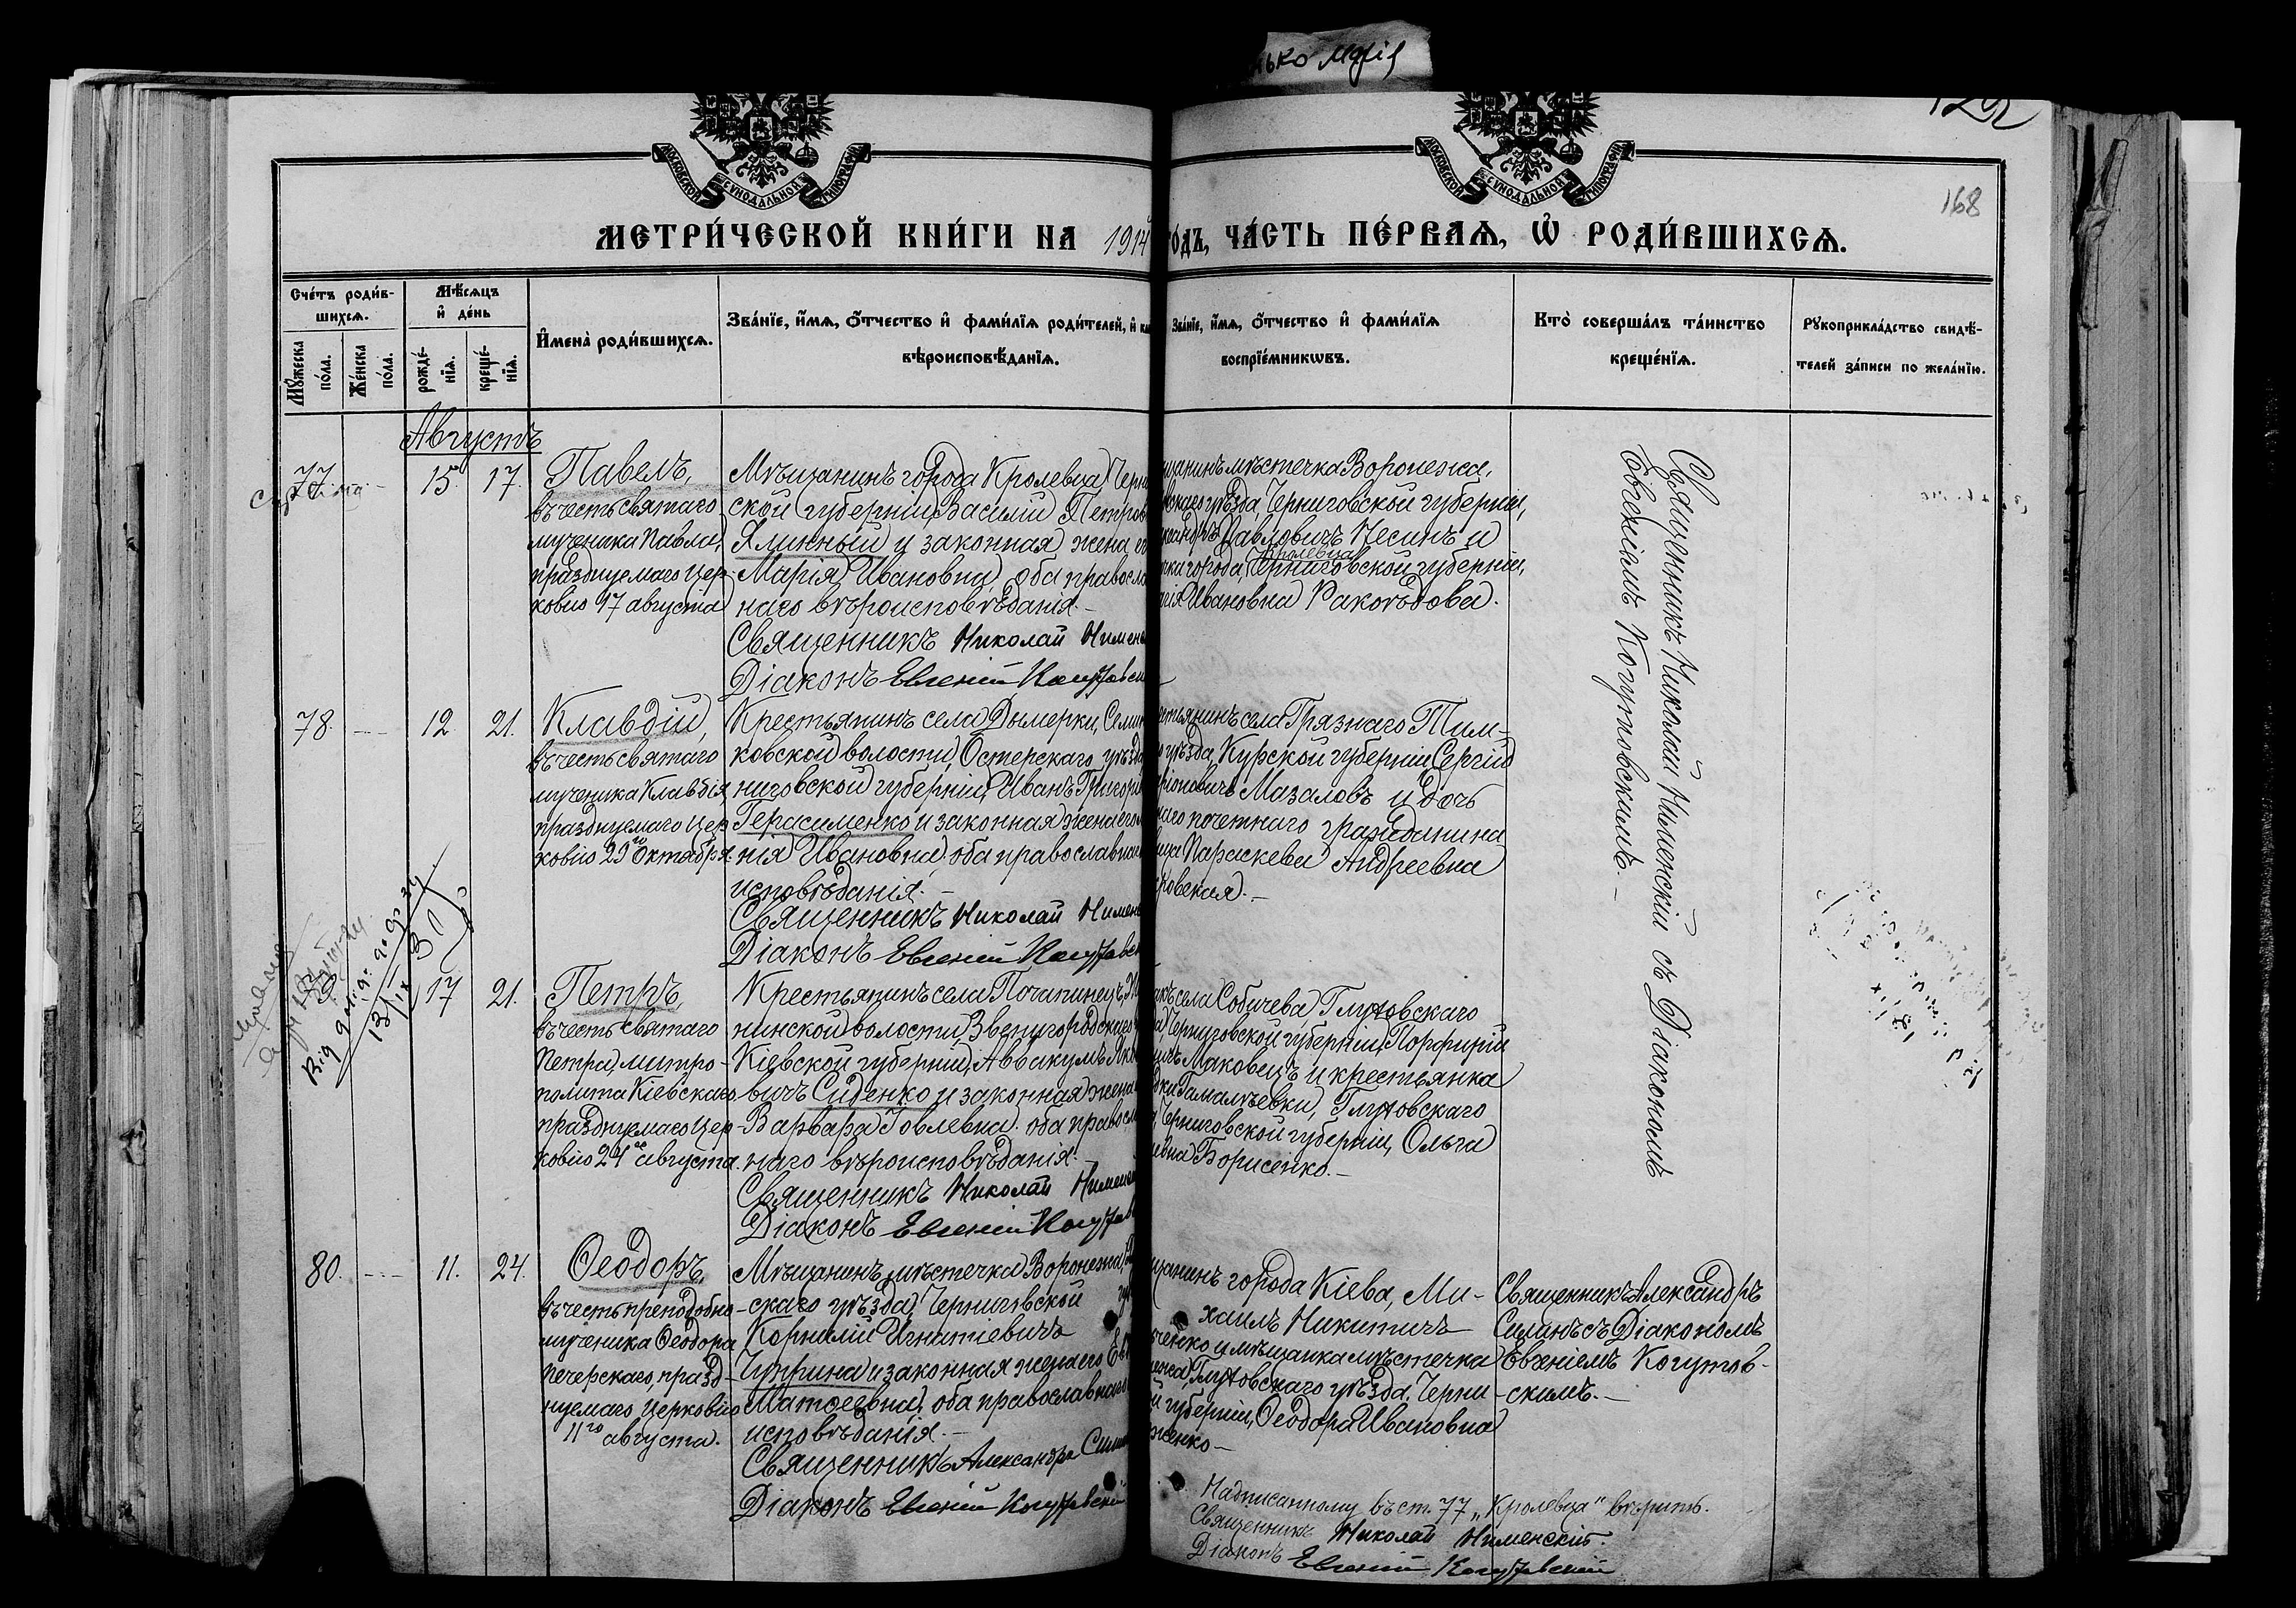 МОСКОВСКОЙ СУНОДАЛЬНОЙ ТИПОГРАФІИ
МОСКОВСКОЙ СУНОДАЛЬНОЙ ТИПОГРАФІИ
168
МЕТРИ́ЧЕСКОЙ КНИ́ГИ НА 1914 ГОДЪ, ЧА́СТЬ ПЕ́РВАѦ, Ѡ҆ РОДИ́ВШИХСѦ.
Сче́тъ роди́в-
шихсѧ.
Мꙋ́жеска по́ла.
Же́нска по́ла.
Мѣ́сѧцъ
и҆ де́нь
рожде́-
нїѧ.
креще́-
нїѧ.
И҆мена̀ роди́вшихсѧ.
Зва́нїе, и҆́мѧ, ѻ҆́тчество и҆ фами́лїѧ роди́телей, и҆
вѣроисповѣ́данїѧ.
Зва́нїе, и҆́мѧ, ѻ҆́тчество и҆ фами́лїѧ
воспрїе́мникѡвъ.
Кто̀ соверша́лъ та́инство
креще́нїѧ.
Рꙋкоприкла́дство свидѣ́-
телей за́писи по жела́нїю.
Августъ
77. - 15. 17.
Павелъ,
въ честь святаго
мученика Павла,
празднуемаго Цер-
ковію 17 августа
Мѣщанинъ города Кролевца, Черни
ской губерніи, Василій Петров
Ялинный и законная жена е
Марія Ивановна, оба правосла
наго вѣроисповѣданія.-
Священникъ Николай Нимен
Діаконъ Евгеній Когутовск
щанинъ мѣстечка Воронежа,
скаго уѣзда, Черниговской губерніи,
ксандръ Павловичъ Песинъ и
Кролевца
нка города, Черниговской губерніи,
рія Ивановна Ракоѣдова.
Священникъ Николай Нименскій съ Діакономъ
Евгеніемъ Когутовскимъ.-
78. - 12 21.
Клавдій,
въ честь святаго
мученика Клавдія,
празднуемаго Цер-
ковію 29го Октября.
Крестьянинъ села Дымерки, Семи
ковской волости, Остерскаго уѣзда
ниговской губерніи, Иванъ Григорі
Герасименко и законная жена его
нія Ивановна, оба православнаго
исповѣданія.-
Священникъ Николай Нимен
Діаконъ Евгеній Когутовск
стьянинъ села Грязнаго Тим-
о уѣзда, Курской губерніи, Сергій
ріоновичъ Мазаловъ и дочь
наго почетнаго гражданина
ица Параскева Андреевна
ровская.-
79. 17 21.
Петръ,
въ честь святаго
Петра, митро-
полита Кіевскаго
празднуемаго Цер-
ковію 24го августа.
Крестьянинъ села Почапинецъ,
нинской волости, Звенигородскаго
Кіевской губерніи, Аввакумъ Яко
вичъ Сиденко и законная жена
Варвара Іовлевна. оба правосла
наго вѣроисповѣданія.-
Священникъ Николай Нименс
Діаконъ Евгеній Когутов
акъ села Собичева, Глуховскаго
а, Черниговской губерніи, Порфирій
ичъ Маковецъ и крестьянка
дки Гамалѣевки, Глуховскаго
, Черниговской губерніи, Ольга
вна Борисенко.-
80. - 11. 24.
Ѳеодоръ,
въ честь преподобно-
мученика Ѳеодора
Печерскаго, празд-
нуемаго Церковію
11го августа.
Мѣщанинъ мѣстечка Воронежа,
скаго уѣзда, Черниговской гу
Корнилій Игнатіевичъ
Чуприна и законная жена его Ев
Матѳеевна, оба православнаго
исповѣданія.-
Священникъ Александръ Силин
Діаконъ Евгеній Когутовскій
щанинъ города Кіева, Ми-
хаилъ Никитичъ
ченко и мѣщанка мѣстечка
нежа, Глуховскаго уѣзда, Черни-
й губерніи, Ѳеодора Ивановна
женко-
Священникъ Александръ
Силинъ съ Діакономъ
Евгеніемъ Когутов-
скимъ.-
Надписанному въ ст. 77 „Кролевца" вѣрить.
Священникъ Николай Нименскій.
Діаконъ Евгеній Когутовскій